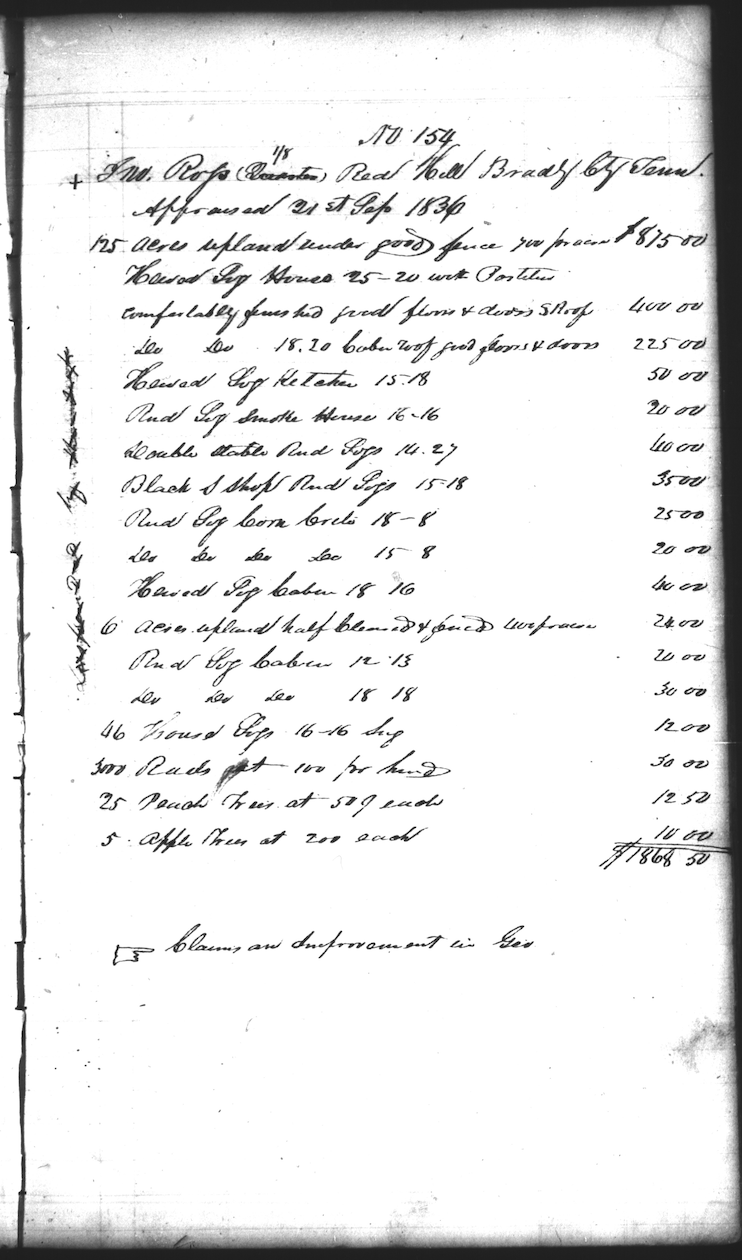 No 154
1/8
+ Jno. Ross (Quarteroon) Red Hill Bradly Cty Tenn.
Appraised 21st Sep 1836
125 Acres upland under good fence 700 pr acre $875 00
Hewed Log House 25-20 with Partition
comfortably finished good floors & doors & Roof 400 00
Do Do 18.20 Cabin roof good floors & doors 225 00
Hewed Log Kitchen 15-18 50 00
Rnd Log Smoke House 16-16 20 00
Double Stable Rnd Logs 14.27 40 00
Black S Shop Rnd Logs 15-18 35 00
Rnd Log Corn Crib 18-8 25 00
Do Do Do Do 15 8 20 00
Hewed Log Cabin 18 16 40 00
6 Acres upland half Cleared & fenced 400 pr acre 24 00
Rnd Log Cabin 12-13 20 00
Do Do Do 18 18 30 00
46 House Logs 16-16 Lng 12 00
3000 Rails at 100 pr hund 30 00
25 Peach Trees at 50 each 12 50
5 Apple Trees at 200 each 10 00
$1868 50
Claims an Improvement in Geo